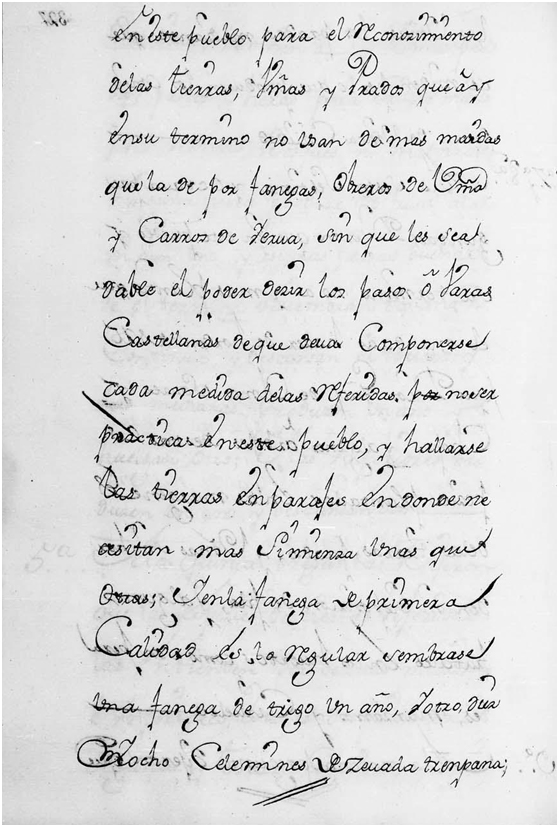 En este pueblo para el Reconozimiento
delas tierras, Viñas y Prados que ay
ensu termino no usan de mas medidas
que la de por fanegas, Obreros de Viña
y Carros de Yerva, sin que les sea
dable el poder dezir los pasos ô Varas
Castellanas de que deva Componerse
cada medida delas Referidas, por no ser
practicas En este pueblo, y hallarse
las tierras En parajes En donde ne
cesitan mas Simienza unas que
otras; Yenla fanega de primera
Calidad es lo Regular sembrase
una fanega de trigo un año, Yotro, diez
Yocho Celemines de Zevada